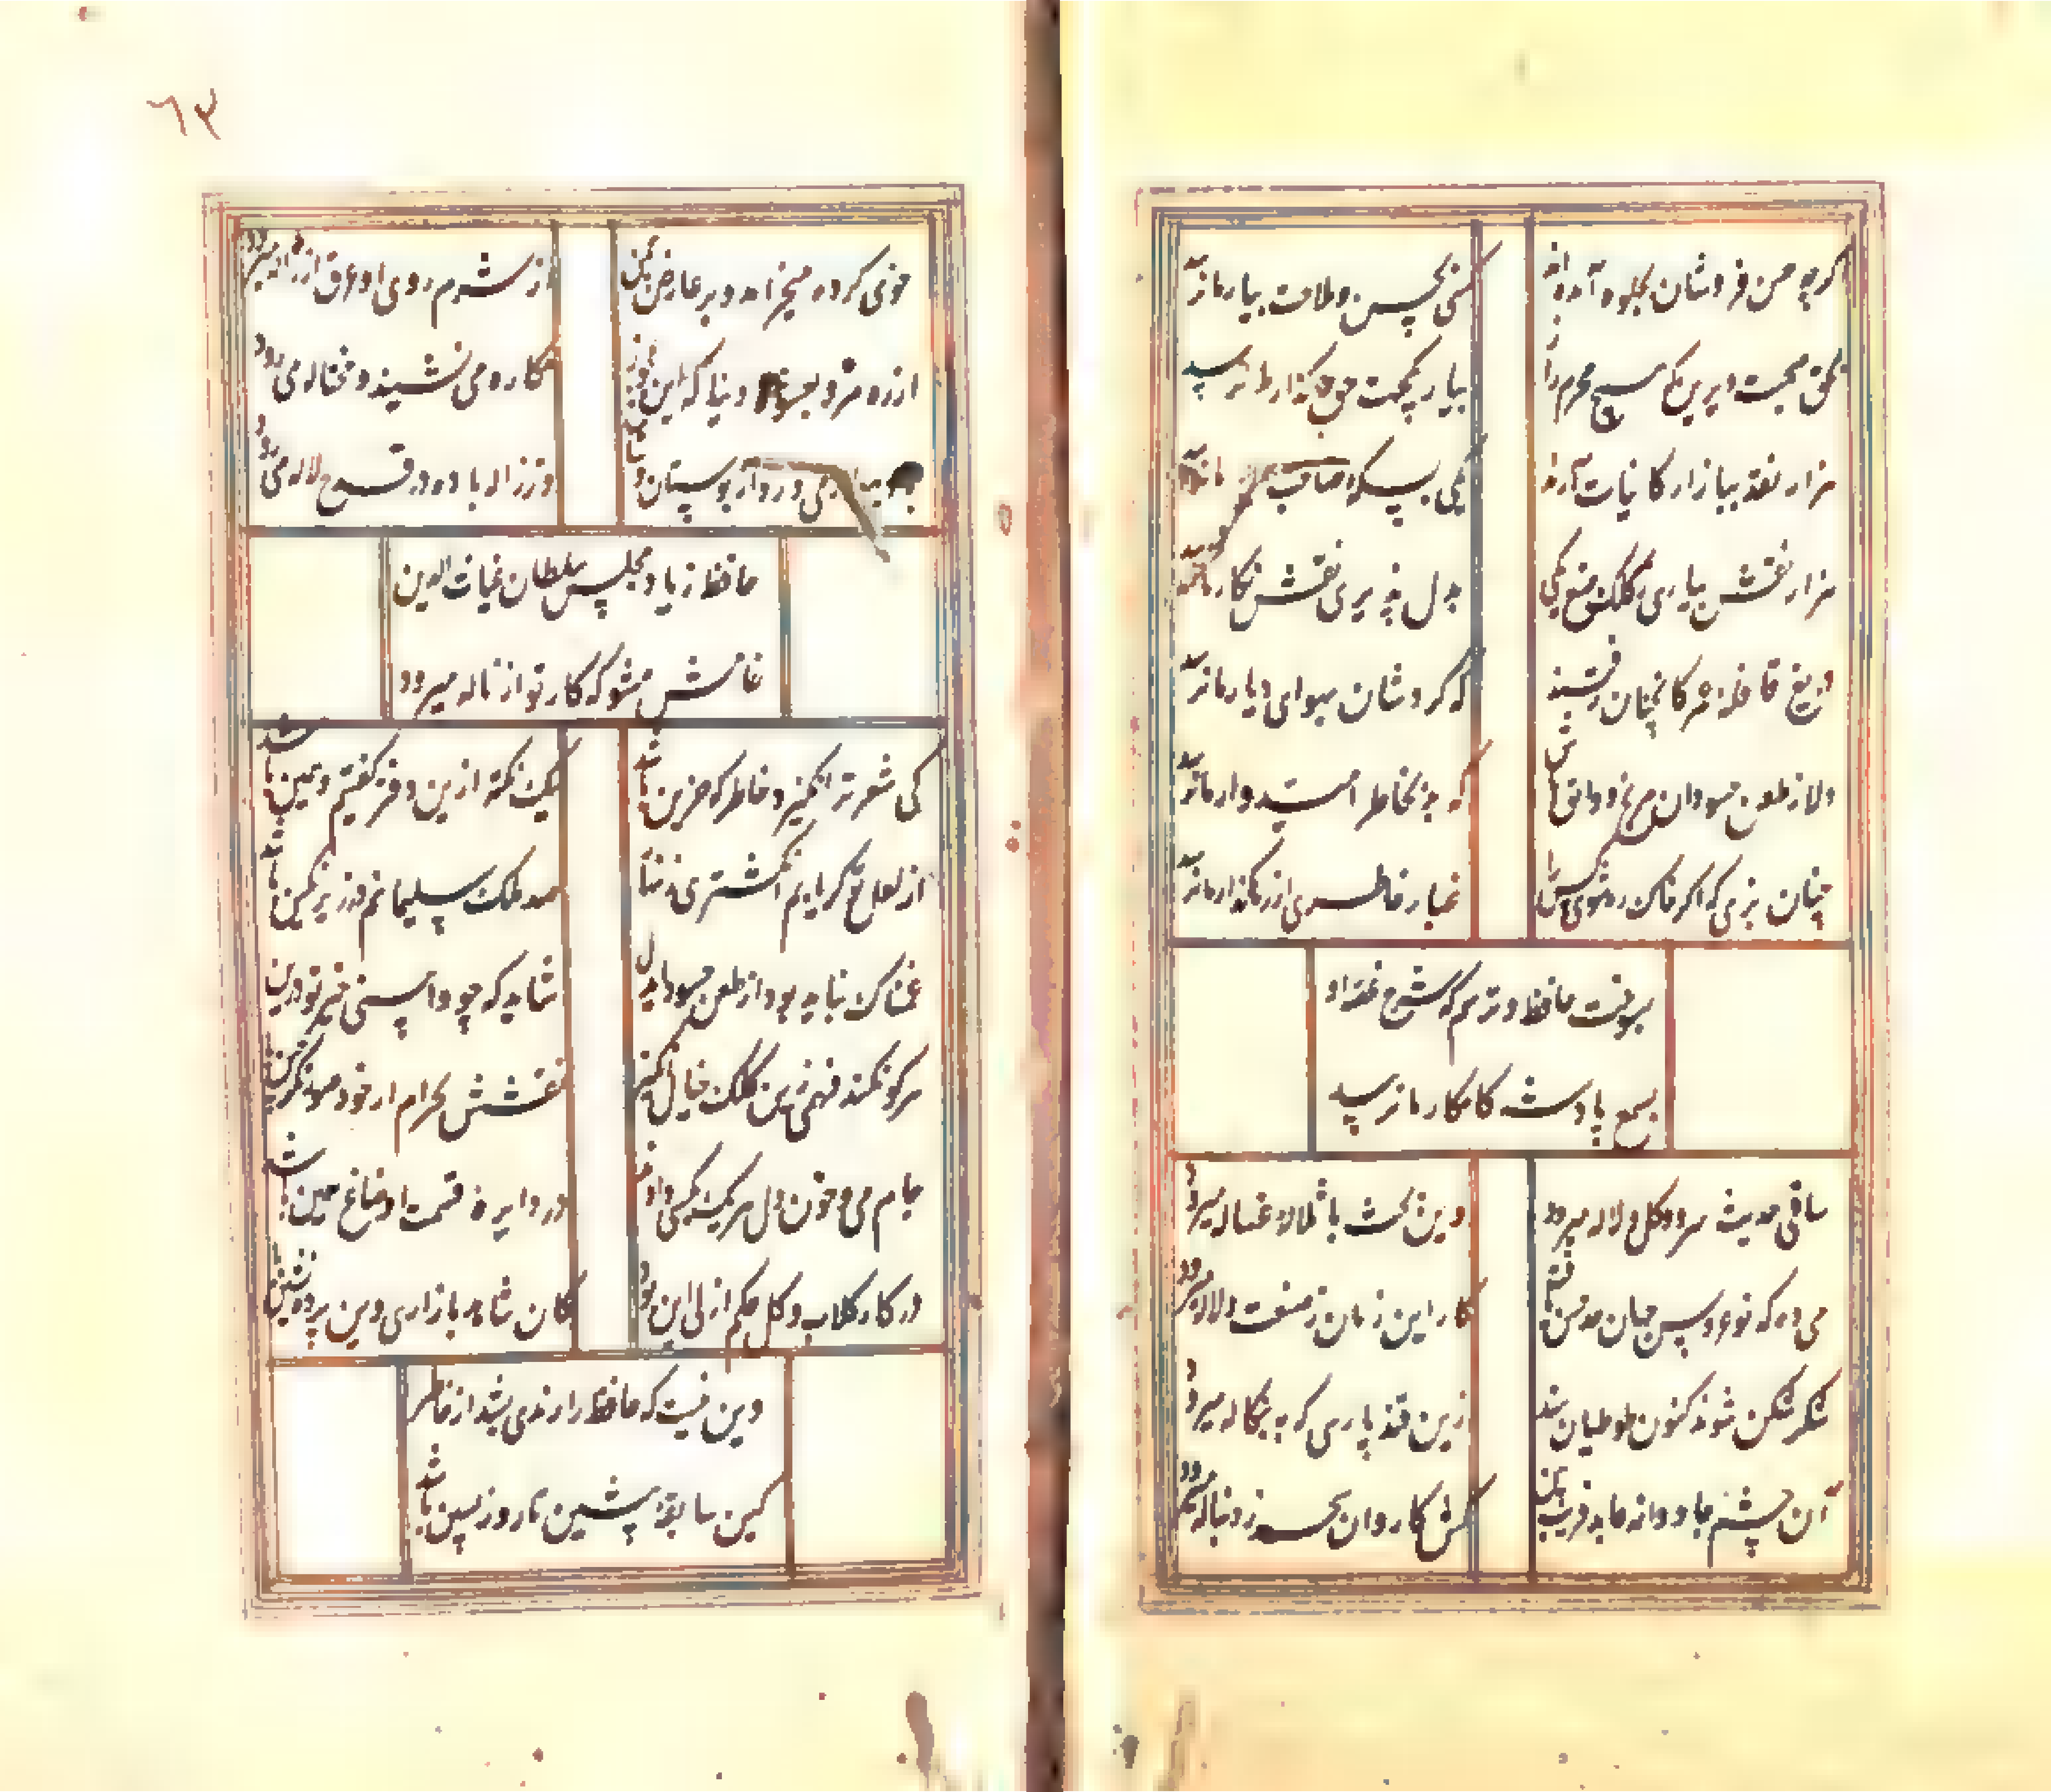 اگرچه حسن فروشان بجلوه آمده اند
کسی بحسن و ملاحت بیار ما نرسد
بحق صحبت دیرین که هیچ محرم راز
بیار یکجهت حق گذار ما نرسد
هزار نقد ببازار کاینات آرند
یکی بسکه صاحب عیار ما نرسد
هزار نقش بیاری ز کلک صنع یکی
بدل پذیری نقش نگار ما نرسد
دریغ قافله عمر کانچنان رفتند
که گردشان بهوای دیار ما نرسد
دلا ز طعن حسودان مرنج و واثق باش
که بد بخاطر امیدوار ما نرسد
چنان بزی که اگر خاک ره شوی کس را
غبار خاطری از رهگذار ما نرسد
بسوخت حافظ و ترسم که شرح غصه او
بسمع پادشه کامکار ما نرسید
ساقی حدیث سرو و گل و لاله میرود
وین بحث با ثلاثه غساله میرود
می ده که نوعروس جهان حد حسن یافت
کار این زمان ز صنعت دلاله میرود
شکر شکن شوند کنون طوطیان هند
زین قند پارسی که به بنگاله میرود
آن چشم جادوانه عابد فریب بین
کش کاروان سحر ز دنباله میرود
۶۳
خوی کرده میخرامد و بر عارض سمن
از شرم روی او عرق از ژاله میرود
از ره مرو بعشوه دنیا که این عجوز
مکاره می نشیند و محتاله می رود
می وزد از بوستان
وز ژاله باده در قدح لاله می رود
حافظ ز یاد مجلس سلطان غیاث الدین
غافل مشو که کار تو از ناله میرود
کی شعر تر انگیزد خاطر که حزین باشد
یک نکته ازین دفتر گفتیم و همین باشد
از لعل تو گر یابم انگشتری زنهار
صد ملک سلیمانم در زیر نگین باشد
غمناک نباید بود از طعن حسود ای دل
شاید که چو وا بینی خیر تو درین
هر کو نکند فهمی زین کلک خیال انگیز
نقشش بحرام ار خود صورتگر چین
جام می و خون دل هر یک بکسی دادند
در دایره قسمت اوضاع چنین باشد
در کار گلاب و گل حکم ازلی این بود
کان شاهد بازاری وین پرده نشین
وین نیست که حافظ را رندی بشد از خاطر
کین سابقه پیشین تا روز پسین باشد